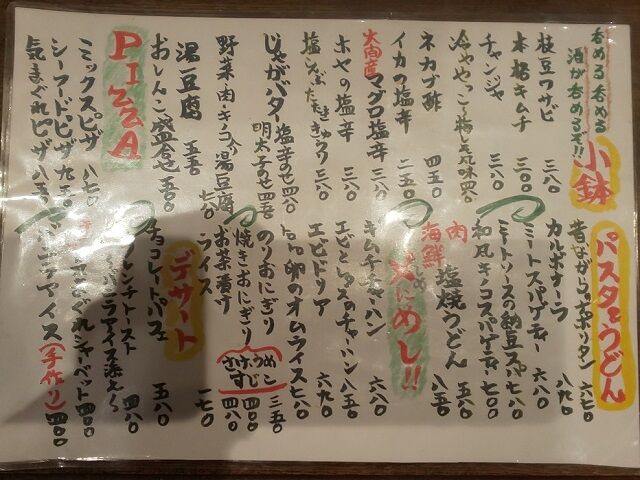 呑める呑める
酒が呑めるぞ!!
小鉢
枝豆ワサビ 三八〇
本格キムチ 三〇〇
チャンジャ 三八〇
冷ややっこ梅と気味 四〇〇
ネカブ酢 四五〇
イカの塩辛 二五〇
大間産マグロ塩辛 三八〇
ホヤの塩辛 三八〇
塩こんぶたたききゅうり 三八〇
じゃがバター 塩辛のせ四八〇
明太子のせ四五〇
野菜・肉・キノコ入り湯豆腐 七八〇
湯豆腐 五五〇
おしんこ盛合せ 五〇〇
PIZZA
ミックスピザ 八七〇
シーフードピザ 九五〇
気まぐれピザ 八五〇
パスタとうどん
昔ながらのナポリタン 六七〇
カルボナーラ 八九〇
ミートスパゲティー 六八〇
ミートソースの納豆スパ 七八〇
和風キノコスパゲティー 七八〇
肉
海鮮
塩焼うどん 八五〇
〆にめし!!
キムチチャーハン 六八〇
エビとレタスのチャーハン 八五〇
エビドリア 六九〇
トロトロ卵のオムライス 七八〇
のりおにぎり 三五〇
焼きおにぎり 四〇〇
さけ うめ
すじこ
お茶漬け 四八〇
ライス 一七〇
デザート
チョコレートパフェ 五八〇
フレンチトースト
バニラアイス添え 四八〇
気まぐれシャーベット 四〇〇
バニラアイス(手作り) 四〇〇